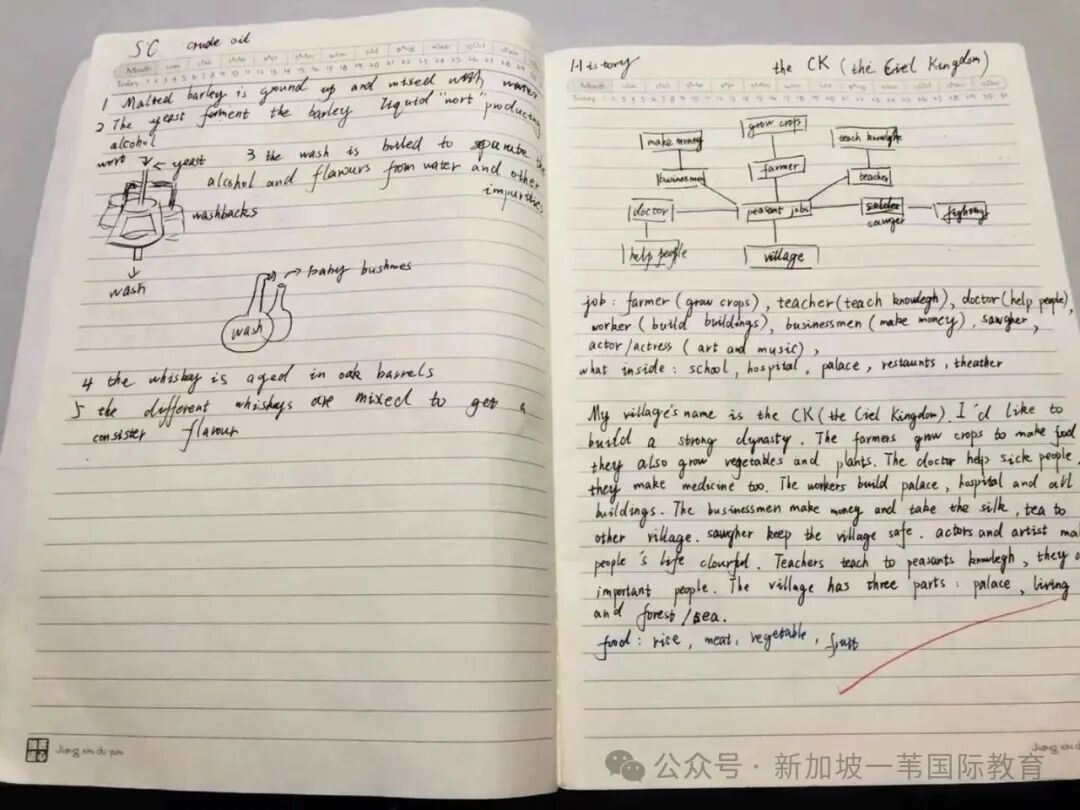 SC crude oil
Month
Today
1 Malted barley is ground up and mixed with water
2 The yeast foment the barley liquid "wort" producing
alcohol
wort yeast 3 the wash is boiled to separate the
alcohol and flavours from water and other
impurities
washbacks
wash
baby bushmes
wash
4 the whiskay is aged in oak barrels
5 the different whiskays are mixed to get a
consister flavour
Jiang xin du yun
History the CK (the Ciel Kingdom)
Month
Today
make money grow crops teach knowleghe
businessmen farmer teacher
doctor peasant jobs sawger fighting
help people village
job : farmer (grow crops), teacher (teach knowlegh), doctor (help people),
worker (build buildings), businessmen (make money), sawgher,
actor/actress (art and music),
what inside : school, hospital, palace, restaunts, theather
My village's name is the CK (the Ciel Kingdom). I'd like to
build a strong dynasty. The farmers grow crops to make food
they also grow vegetables and plants. The doctor help sick people,
they make medicine too. The workers build palace, hospital and all
buildings. The businessmen make money and take the silk, tea to
other village. sawgher keep the village safe. actors and artist ma
people's life clourful. Teachers teach to peasants knowlegh, they a
important people. The village has three parts : palace, living
and forest/sea.
food : rice, meat, vegetable, fruit
公众号 · 新加坡一苇国际教育